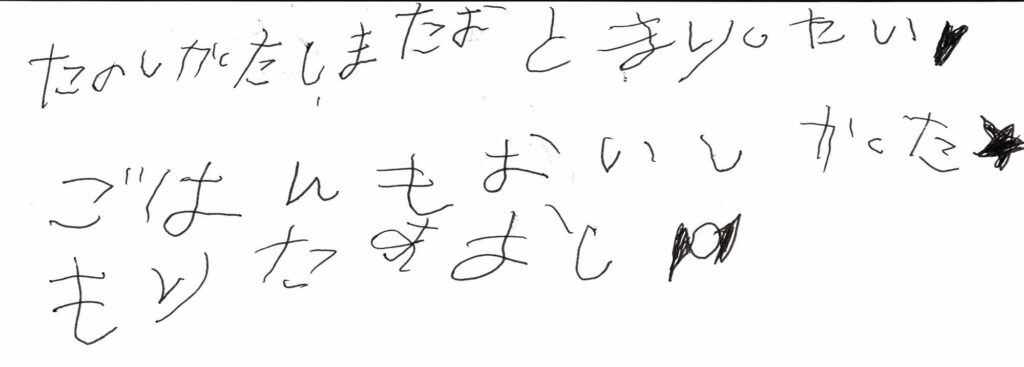 たのしかたしまたおときりたい
ごはんもおいしかた
もりたきおし